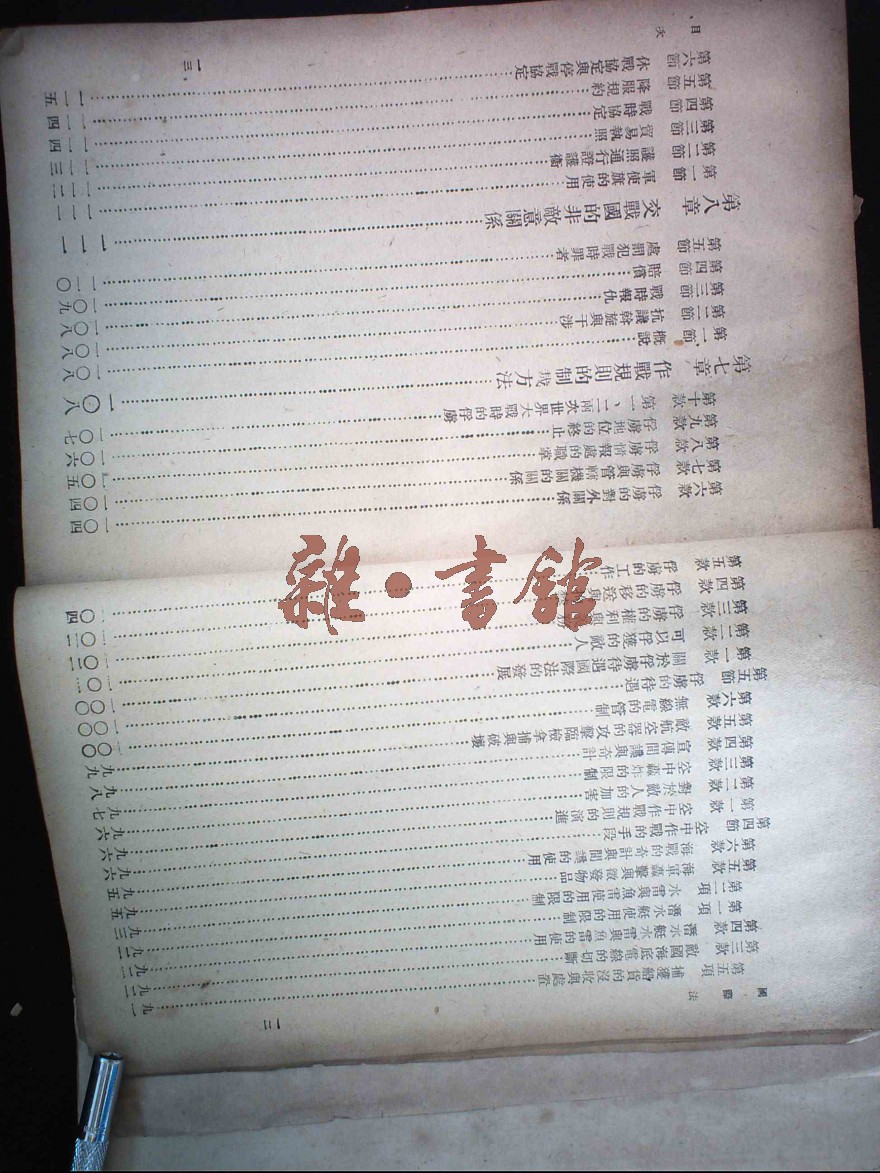 國際法
一二
第五項 捕獲船貨的沒收與處置……九一
第三款 敵國海底電線的切斷……九二
第四款 潛水艇水雷與魚雷的使用……九二
第一項 潛水艇使用的限制……九三
第二項 水雷與魚雷使用的限制……九五
第五款 海軍轟擊與徵發物品……九五
第六款 海戰的奇計與間諜的使用……九六
第四節 空中作戰的手段……九六
第一款 空中作戰規則的演進……九六
第二款 對於敵人的加害……九七
第三款 空中轟炸的限制……九八
第四款 宣傳間諜與奇計……九九
第五款 敵航空器的攻擊臨檢拿捕與破壞……一〇〇
第六款 無線電的管制……一〇〇
第五節 俘虜的待遇……一〇〇
第一款 關於俘虜待遇國際法的發展……一〇一
第二款 可以俘獲的敵人……一〇二
第三款 俘虜的權利與
第四款 俘虜的移送與
第五款 俘虜的工作……一〇四
目次
一三
第六款 俘虜的對外關係……一〇四
第七款 俘虜與管轄機關的關係……一〇四
第八款 俘虜情報處的職掌……一〇五
第九款 俘虜地位的終止……一〇六
第十款 第一、二兩次世界大戰時的俘虜……一〇七
第七章 作戰規則的制裁方法……一〇八
第一節 概說……一〇八
第二節 抗議斡旋與干涉……一〇八
第三節 戰時報仇……一〇八
第四節 賠償……一〇九
第五節 處罰犯戰時罪者……一一〇
第八章 交戰國的非敵意關係……一一一
第一節 軍使旗的使用……一一一
第二節 護照通行證護衛……一一二
第三節 貿易執照……一一三
第四節 戰時協定……一一四
第五節 降服規約……一一四
第六節 休戰協定與停戰協定……一一五
雜·書館